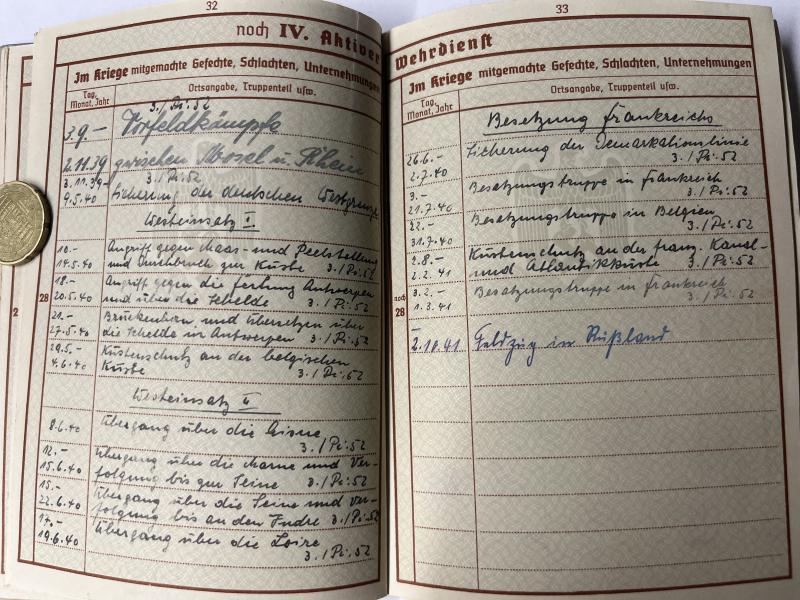 32
noch IV. Aktiver
Im Kriege mitgemachte Gefechte, Schlachten, Unternehmungen
Tag, Monat, Jahr
Ortsangabe, Truppenteil usw.
3./Pi.52
3.9.- Vorfeldkämpfe
2.11.39 zwischen Mosel u. Rhein
3.11.39- 3./Pi.52
9.5.40 Sicherung der deutschen Westgrenze
Westeinsatz I
10.- Angriff gegen Maas- und Peelstellung
14.5.40 und Durchbruch zur Küste 3./Pi.52
18.- Angriff gegen die Festung Antwerpen
28
20.5.40 und über die Schelde 3./Pi.52
21.- Brückenbau und Übersetzen über
2
27.5.40 die Schelde in Antwerpen 3./Pi.52
29.5.- Küstenschutz an der belgischen
4.6.40 Küste 3./Pi.52
Westeinsatz II
8.6.40 Übergang über die Aisne
3./Pi.52
12.- Übergang über die Marne und Ver-
15.6.40 folgung bis zur Seine 3./Pi.52
15.- Übergang über die Seine und Ver-
22.6.40 folgung bis an den Indre 3./Pi.52
17.- Übergang über die Loire
19.6.40 3./Pi.52
33
Wehrdienst
Im Kriege mitgemachte Gefechte, Schlachten, Unternehmungen
Tag, Monat, Jahr
Ortsangabe, Truppenteil usw.
Besetzung Frankreichs
26.6.- Sicherung der Demarkationslinie
2.7.40 3./Pi.52
3.- Besetzungstruppe in Frankreich
21.7.40 3./Pi.52
22.- Besetzungstruppe in Belgien
31.7.40 3./Pi.52
2.8.- Küstenschutz an der franz. Kanal-
2.2.41 und Atlantikküste 3./Pi.52
3.2.- Besetzungstruppe in Frankreich
noch
28
1.3.41 3./Pi.52
2.10.41 Feldzug in Rußland